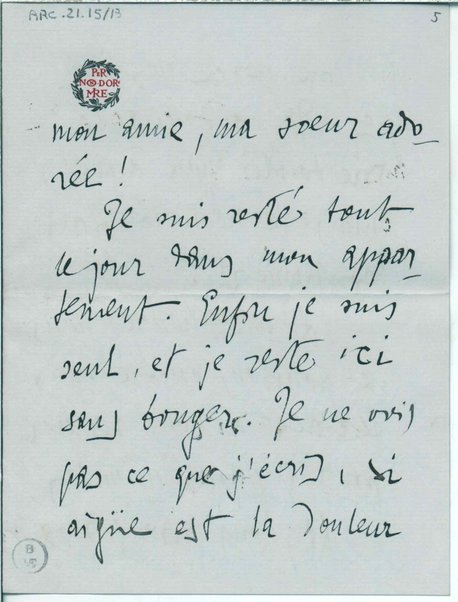 ARC.21.15/13
5
PER
NON DOR
MIRE
mon amie, ma soeur ado-
rée!
Je suis resté tout
le jour dans mon appar-
tement. Enfin je suis
seul, et je reste ici
sans bouger. Je ne vois
pas ce que j'écris, si
aigüe est la douleur
B